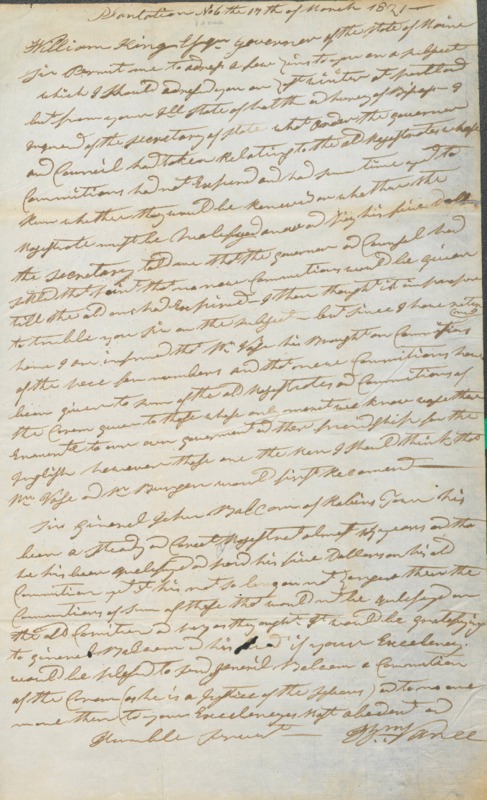 Plantation No 6 the 17th of March 1821 —
William King Esqr governor of the State of Maine
Sir Permit me to adress a few lines to you on a subject
which I should adress you on last winter at portland
but from your Ill State of halth and hurey of Bisness I
inquired of the secretary of state what order the governor
and Council had taken Relating to the old Majestrates whose
Committions had not Expired and had some time yet to
Run whether they would be Renewed or whether the
Majestrate must be qualefyed anew and pay his five dolls
the secretary told me that the governor and Counsel had
setled that point that no new Committions would be given
till the old ones had Expired — I then thought it
to truble you sir on the subject — but since I have return
home I am informed that Mr Vose his Brought on Committions
of the new numbers and that new Committions have
been given to sum of the old Majestrates and Committions of
the Corem given to those whose only merit we know
to our own goverment and ther friendship for the
Inglish however those are the men I should think that
Mr Vose and Mr Burgen would first Recament
Sir General John Balcam of Robins Town his
been a steady and Majestrate almost years on tho
he his been qualefyed and paid his five Dollars on his old
Committion yet it his not to be against them the
Committions of sum of those that would be qualefyed on
the old Comition and say as they ought It would be gratifying
to general Balcam and his if your Excelency
would be plesed to send general Balcam a Committion
of the Corem (as he is a Justice of the ) and to no one
more then to your Excelencyes Most obedent and
Humble servent Wm Vance